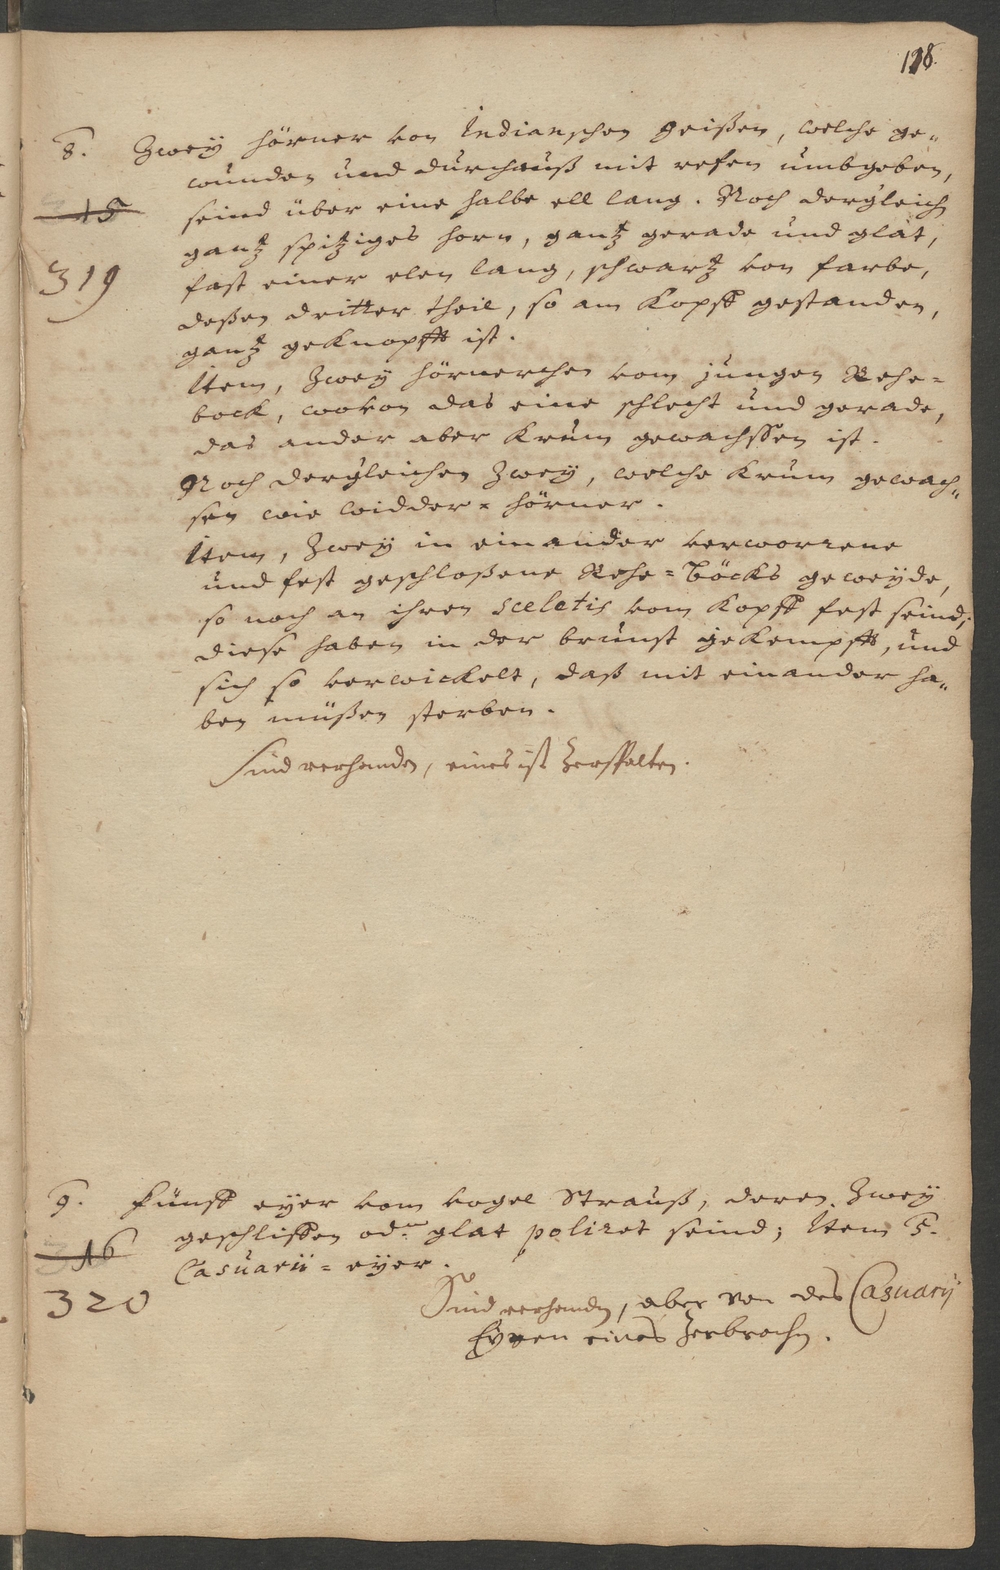 128.
8. Zwey hörner von Indianschen geißen, welche ge-
wunden und durchauß mit refen umbgeben,
15 seind über eine halbe ell lang. Noch dergleich
ganß spitziges horn, gantz gerade und glat,
319 fast einer elen lang, schwartz von farbe,
deßen dritter theil, so am Kopff gestanden,
gantz geknopfft ist.
Item, Zwey hörnerchen vom jungen Rehe-
bock, wovon das eine schlecht und gerade,
das ander aber krum gewachssen ist.
Noch dergleichen Zwey, welche krum gewach-
sen wie widder-hörner.
Item, Zwey in einander verworrene
und fest geschloßene Rehe-böcks geweyde,
so noch an ihren sceletis vom Kopff fest seind;
diese haben in der brunst gekempfft, und
sich so verwickelt, daß mit einander ha-
ben müßen sterben.
Sind verhanden, eines ist Zerspalten.
9. Fünff eyer vom vogel Strauß, deren Zwey
geschliffen od. glat poliret seind; Item 5.
16 Casuarii-eyer.
320 Sind verhanden, aber von des Casuarij
Eyeren eines Zerbrochen.